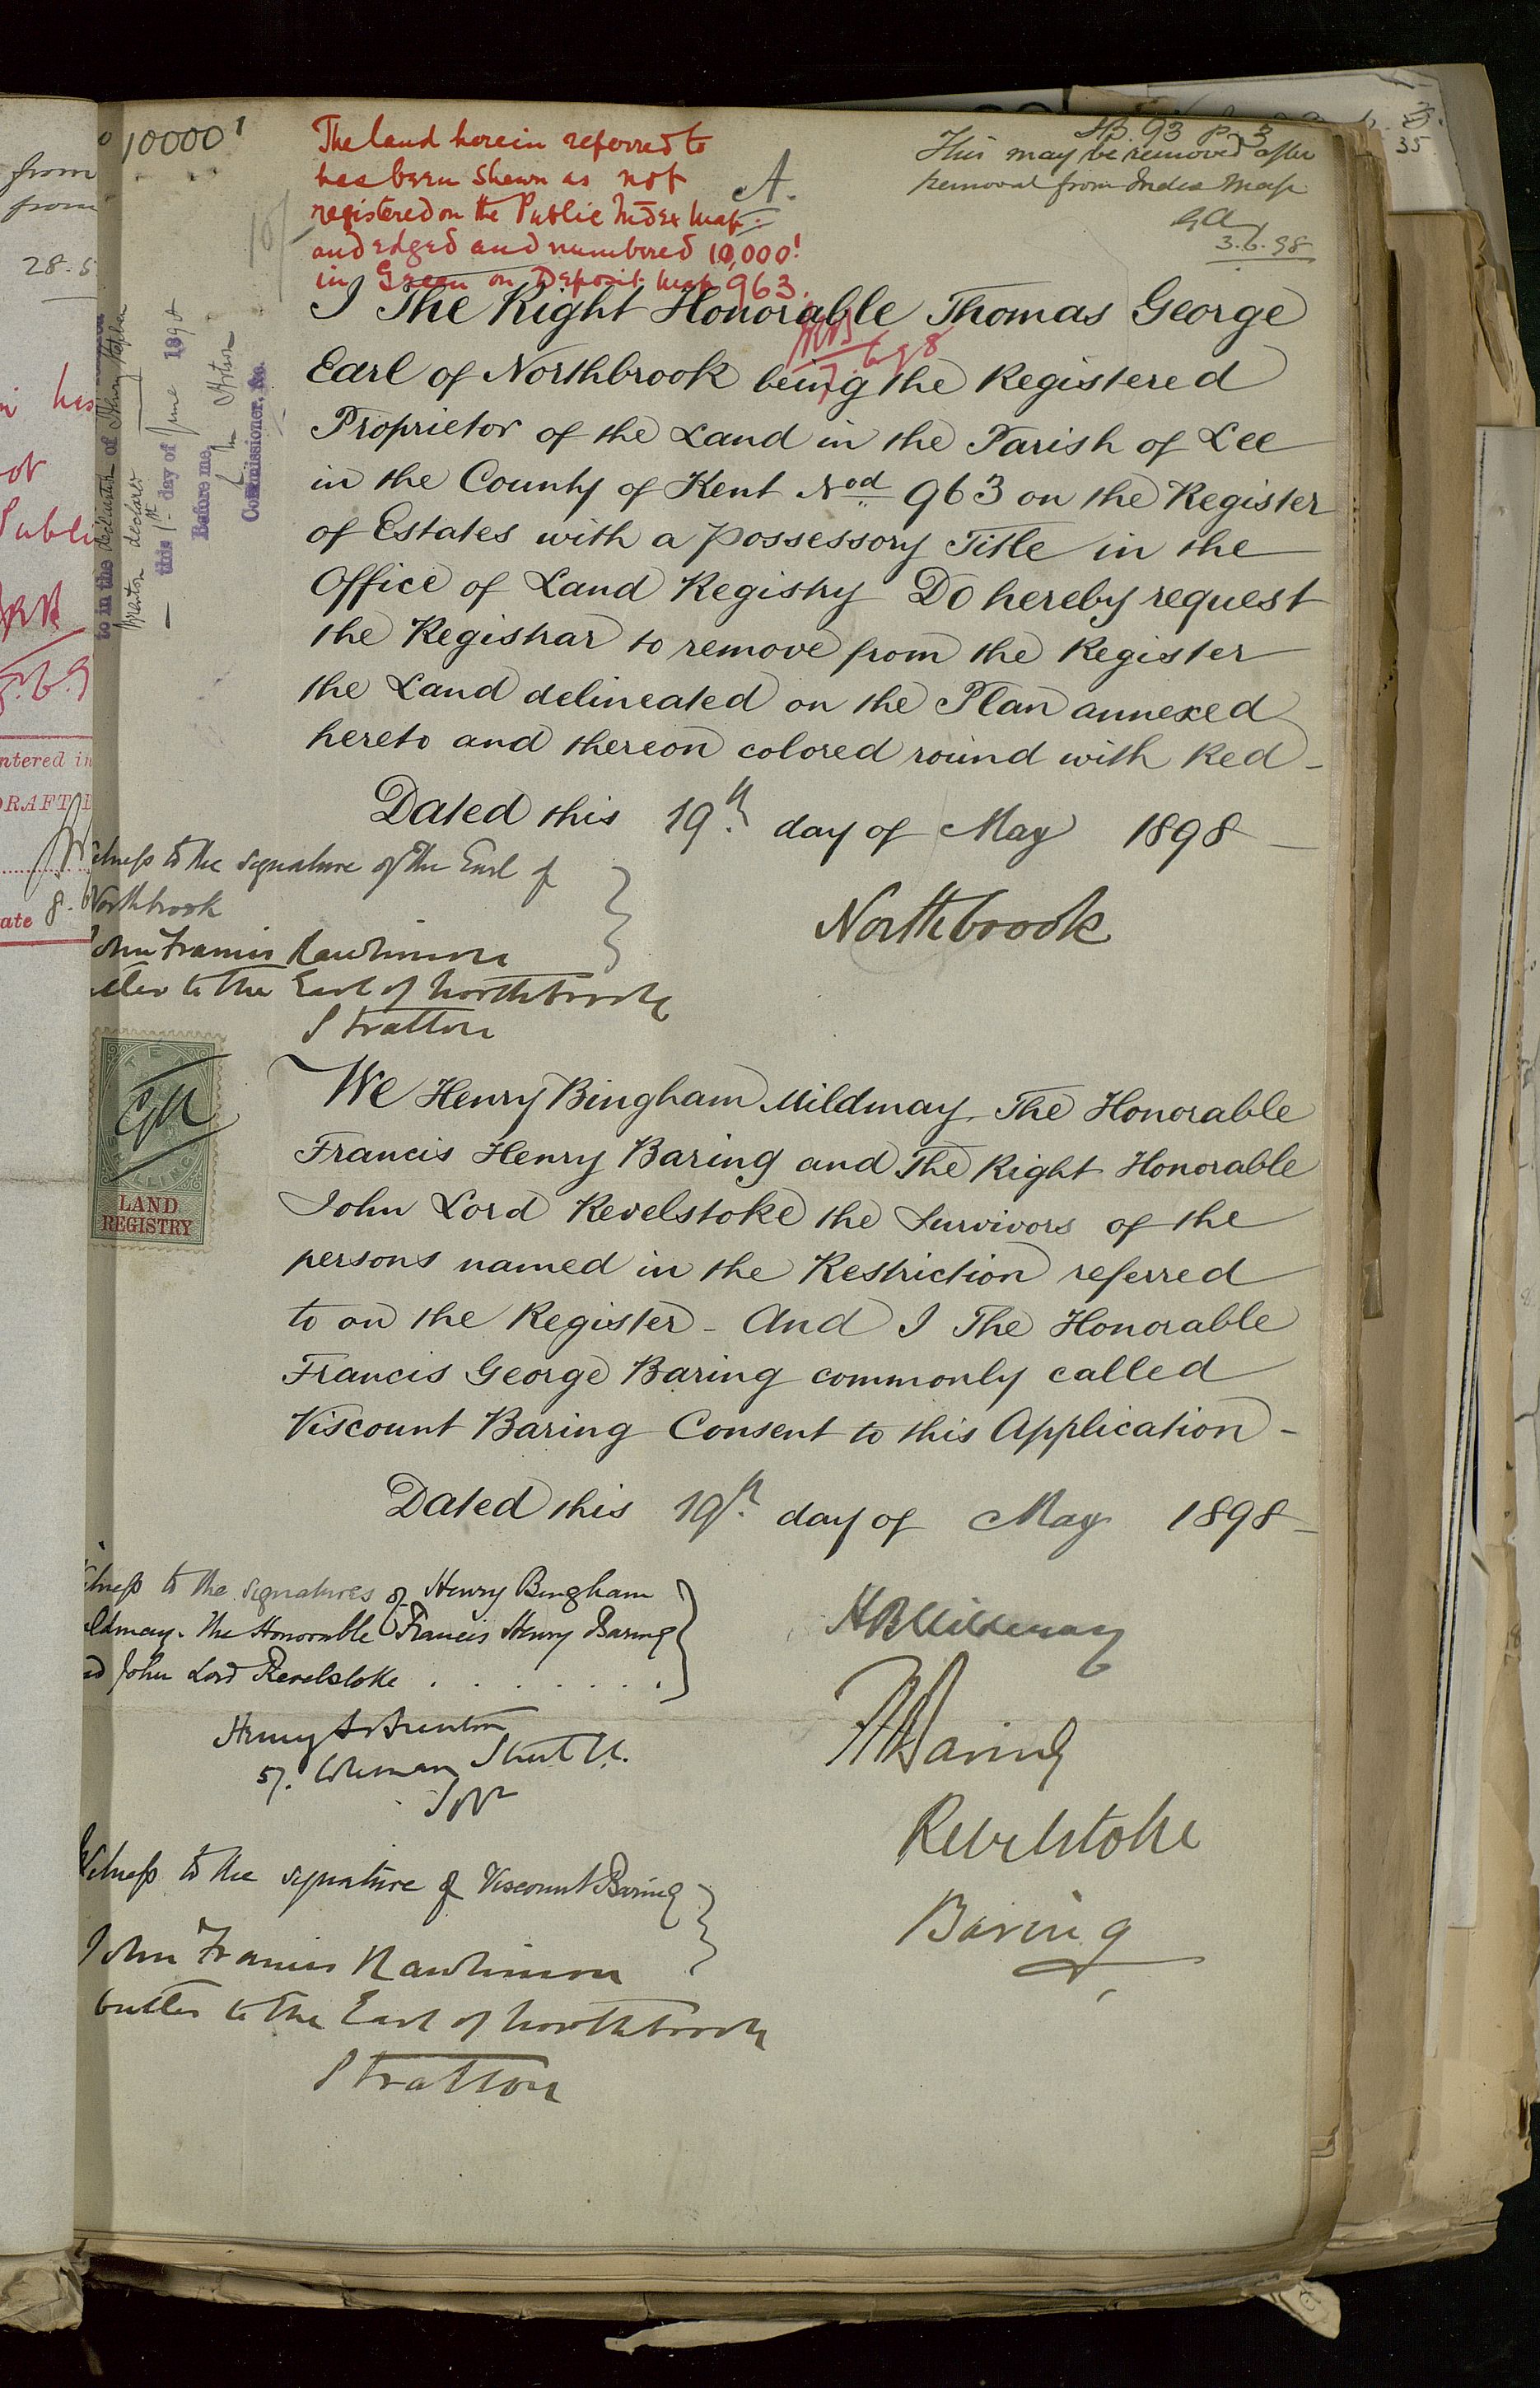 10000¹
The land herein referred to
has been shewn as not
registered on the Public Index Map
and edged and numbered 10,000¹
in Green on Deposit Map 963.
A.
This may be removed after
removal from Index Map
3.6.98
I The Right Honorable Thomas George
Earl of Northbrook being the Registered
Proprietor of the Land in the Parish of Lee
in the County of Kent Nod 963 on the Register
of Estates with a possessory Title in the
Office of Land Registry Do hereby request
the Registrar to remove from the Register
the Land delineated on the Plan annexed
hereto and thereon colored round with Red
Dated this 19th day of May 1898
itness to the signature of the Earl of
Northbrook
John Francis Rawlinson
utler to the Earl of Northbrook
Stratton
Northbrook
LAND
REGISTRY
We Henry Bingham Mildmay, The Honorable
Francis Henry Baring and The Right Honorable
John Lord Revelstoke the Survivors of the
persons named in the Restriction referred
to on the Register – And I The Honorable
Francis George Baring commonly called
Viscount Baring Consent to this Application –
Dated this 19th day of May 1898
itness to the signatures of Henry Bingham
ldmay. The Honorable Francis Henry Baring
nd John Lord Revelstoke
57. Coleman Street
HBMildmay
FHBaring
Revelstoke
Baring
Witness to the signature of Viscount Baring
John Francis Rawlinson
butler to the Earl of Northbrook
Stratton
to in the declaration of
declared
this 1st day of June 1898
Before me,
Commissioner, &c.
from
from
28.5
has
ot
Publi
ntered in
DRAFT
ate 8.
35